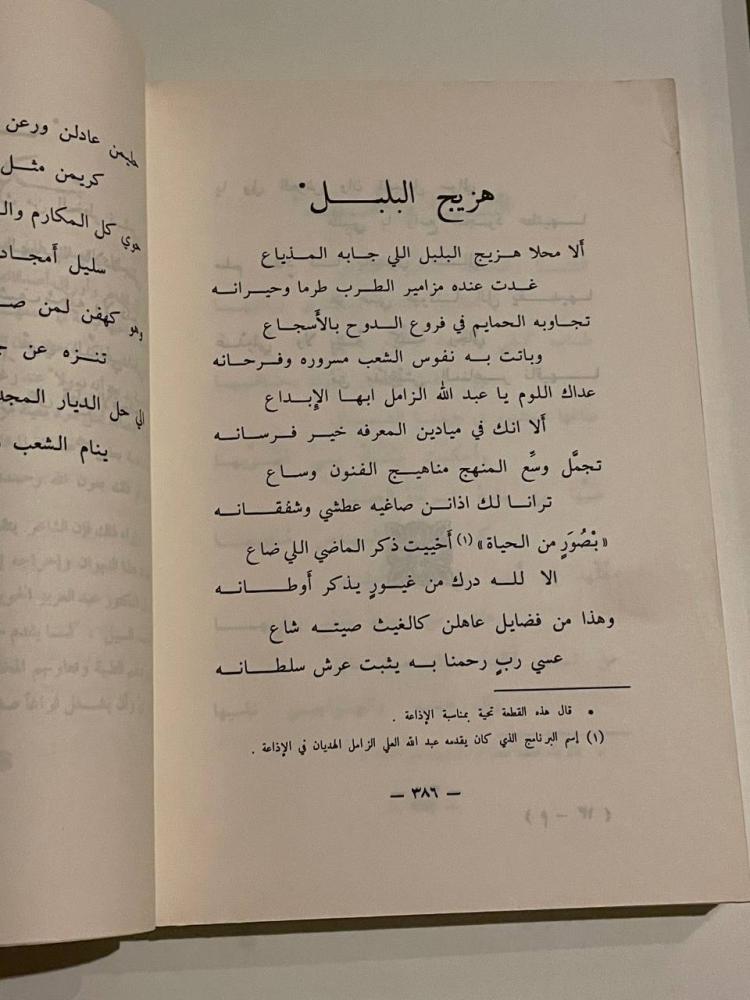 هزيج البلبل*
ألا محلا هزيج البلبل اللي جابه المذياع
غدت عنده مزامير الطرب طرما وحيرانه
تجاوبه الحمايم في فروع الدوح بالأسجاع
وباتت به نفوس الشعب مسروره وفرحانه
عداك اللوم يا عبد الله الزامل ابها الإبداع
ألا انك في ميادين المعرفه خير فرسانه
تجمَّل وسِّع المنهج مناهيج الفنون وساع
ترانا لك اذانن صاغيه عطشي وشفقانه
«بْصُوَرٍ من الحياة» (١) أخييت ذكر الماضي اللي ضاع
الا لله درك من غيورٍ يذكر أوطانه
وهذا من فضايل عاهلن كالغيث صيته شاع
عسي ربٍ رحمنا به يثبت عرش سلطانه
* قال هذه القطعة تحية بمناسبة الإذاعة .
(١) إسم البرنامج الذي كان يقدمه عبد الله العلي الزامل الهديان في الإذاعة .
— ٣٨٦ —
عادلن ورعن
كريمن مثل
حوي كل المكارم
سليل
وهو كهفن لمن
تنزه عن
حل الديار
ينام الشعب